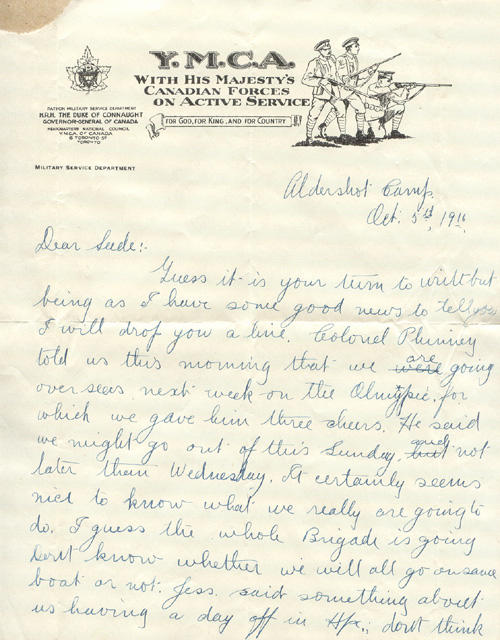 Y.M.C.A.
WITH HIS MAJESTY'S
CANADIAN FORCES
ON ACTIVE SERVICE
FOR GOD, FOR KING, AND FOR COUNTRY
PATRON MILITARY SERVICE DEPARTMENT
H.R.H. THE DUKE OF CONNAUGHT
GOVERNOR-GENERAL OF CANADA
HEADQUARTERS NATIONAL COUNCIL
Y.M.C.A. OF CANADA
TORONTO
MILITARY SERVICE DEPARTMENT
Aldershot Camp.
Oct. 5th, 1916
Dear Seede:.
Guess it is your turn to write but
being as I have some good news to tell you
I will drop you a line. Colonel Phinney
told us this morning that we were are going
overseas next week on the Olmypic, for
which we gave him three cheers. He said
we might go out of this Sunday, but and not
later than Wednesday. It certainly seems
nice to know what we really are going to
do. I guess the whole Brigade is going
Don't know whether we will all go on same
boat or not. Jess. said something about
us having a day off in Hfx., don't think